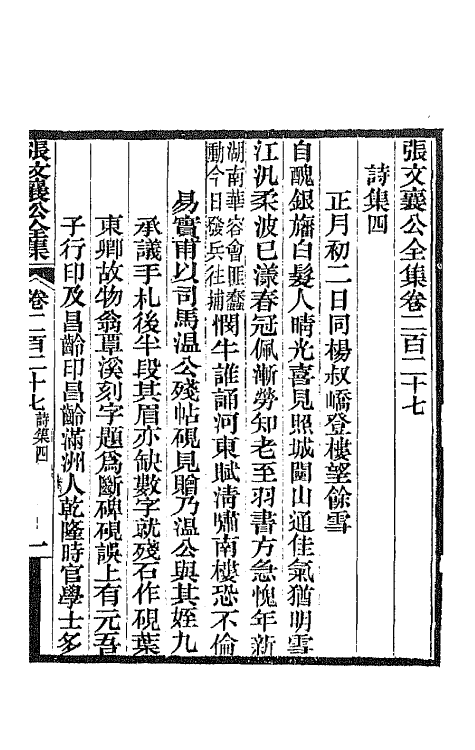 張文襄公全集卷二百二十七
詩集四
正月初二日同楊叔嶠登樓望餘雪
自醜銀旛白髮人晴光喜見照城闉山通佳氣猶明雪
江汎柔波已漾春冠佩漸勞知老至羽書方急愧年新
湖南華容會匪蠢
動今日發兵往捕
憫牛誰誦河東賦淸嘯南樓恐不倫
易實甫以司馬溫公殘帖硯見贈乃溫公與其姪九
承議手札後半段其眉亦缺數字就殘石作硯葉
東卿故物翁覃溪刻字題爲斷碑硯誤上有元吾
子行印及昌齡印昌齡滿洲人乾隆時官學士多
張文襄公全集
卷二百二十七
詩集四
一